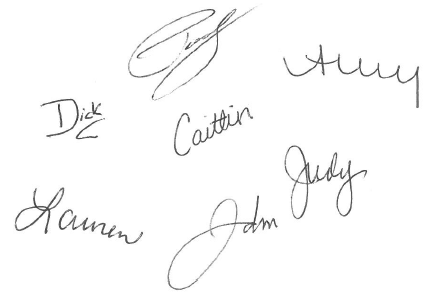 Amy
Dick
Caitlin
Judy
Lauren
John